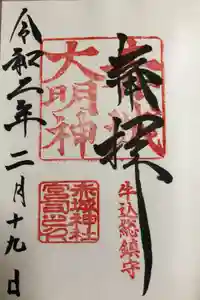 奉拝
牛込総鎮守
赤城
大明神
赤城神社
宮司之印
令和三年二月十九日